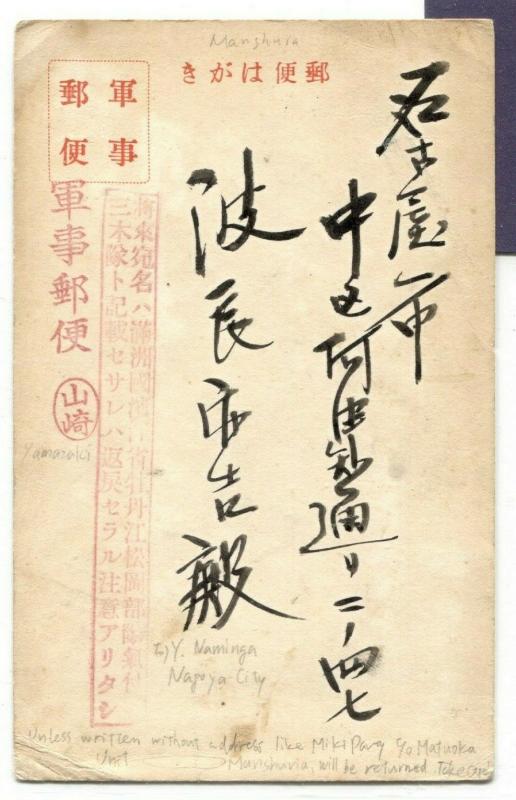 Manshuria
郵便はがき
軍事
郵便
名古屋市
中区阿由知通リ二ノ四七
波長市吉殿
軍事郵便
山崎
Yamazaki
将来宛名ハ満洲國濱江省牡丹江松岡部隊氣付
三木隊ト記載セサレハ返戻セラル注意アリタシ
to) Y. Naminga
Nagoya City
Unless written without address like Miki Party c/o Matuoka
Unit
Manshuria, will be returned. Take care